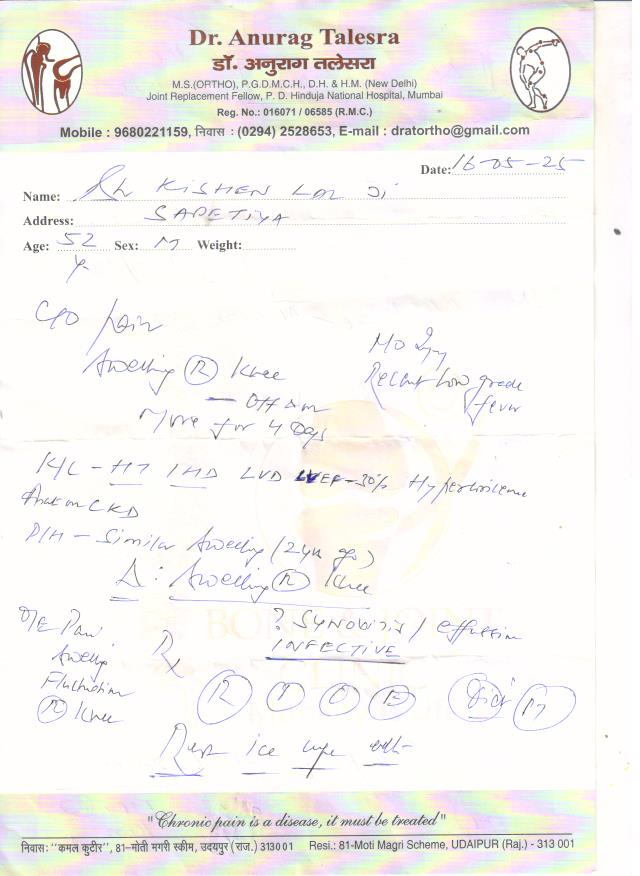 Dr. Anurag Talesra
डॉ. अनुराग तलेसरा
M.S.(ORTHO), P.G.D.M.C.H., D.H. & H.M. (New Delhi)
Joint Replacement Fellow, P. D. Hinduja National Hospital, Mumbai
Reg. No.: 016071 / 06585 (R.M.C.)
Mobile : 9680221159, निवास : (0294) 2528653, E-mail : dratortho@gmail.com
Date: 16-05-25
Name: Sh KISHEN LAL Ji
Address: SAPETIYA
Age: 52 Sex: M Weight:
y.
C/O pain
Swelling (R) Knee
— Off & on
More for 4 Days
Recent low grade
fever
K/C - HT IHD LVD LVEF-30%
CKD
P/H - Similar Swelling (2 yr ago)
Δ: Swelling (R) Knee
? SYNOVITIS / effusion
INFECTIVE
O/E Pain
Swelling
Fluctuation
(R) Knee
Rx
R I C E
Rest ice
"Chronic pain is a disease, it must be treated"
निवास: "कमल कुटीर", 81-मोती मगरी स्कीम, उदयपुर (राज.) 313001 Resi.: 81-Moti Magri Scheme, UDAIPUR (Raj.) - 313 001